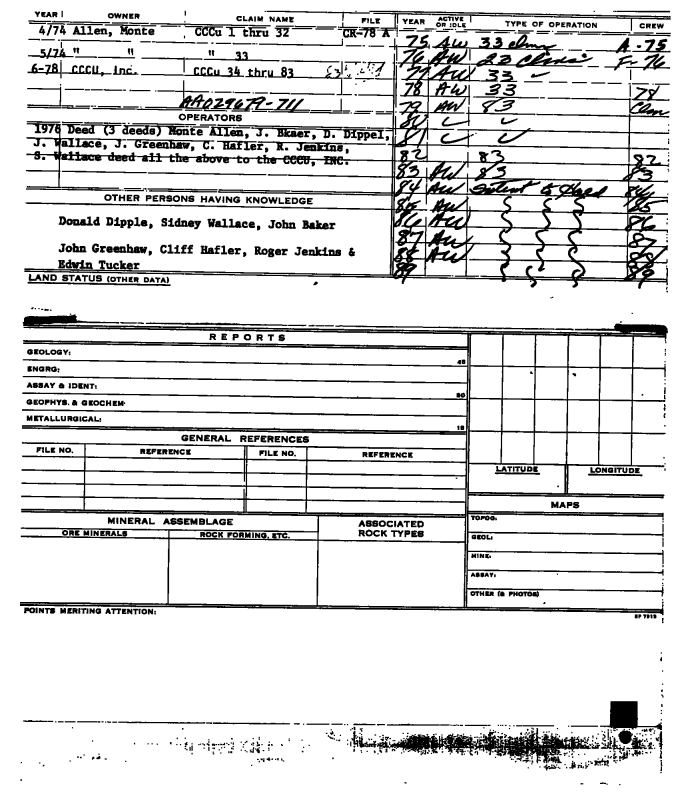 YEAR OWNER CLAIM NAME FILE
4/74 Allen, Monte CCCu 1 thru 32 CR-78 A
5/74 " " " 33
6-78 CCCU, Inc. CCCu 34 thru 83
AA029679-711
OPERATORS
1976 Deed (3 deeds) Monte Allen, J. Bkaer, D. Dippel,
J. Wallace, J. Greenhaw, C. Hafler, R. Jenkins,
S. Wallace deed all the above to the CCCU, INC.
OTHER PERSONS HAVING KNOWLEDGE
Donald Dipple, Sidney Wallace, John Baker
John Greenhaw, Cliff Hafler, Roger Jenkins &
Edwin Tucker
LAND STATUS (OTHER DATA)
YEAR ACTIVE OR IDLE TYPE OF OPERATION CREW
75 AW 33 clms A-75
76 AW 33 Clms F-76
77 AW 33
78 AW 33 78
79 AW 83 Clm
80 ✓ ✓
81 ✓ ✓
82 83 82
83 AW 83 83
84 AW Intent to Hold 84
85 AW 85
86 AW 86
87 AW 87
88 AW 88
89 89
REPORTS
GEOLOGY:
45
ENGRG:
ASSAY & IDENT:
30
GEOPHYS. & GEOCHEM:
METALLURGICAL:
15
GENERAL REFERENCES
FILE NO. REFERENCE FILE NO. REFERENCE
LATITUDE LONGITUDE
MAPS
TOPOG:
GEOL:
MINE:
ASSAY:
OTHER (& PHOTOS)
MINERAL ASSEMBLAGE ASSOCIATED ROCK TYPES
ORE MINERALS ROCK FORMING, ETC.
POINTS MERITING ATTENTION:
SP 7919